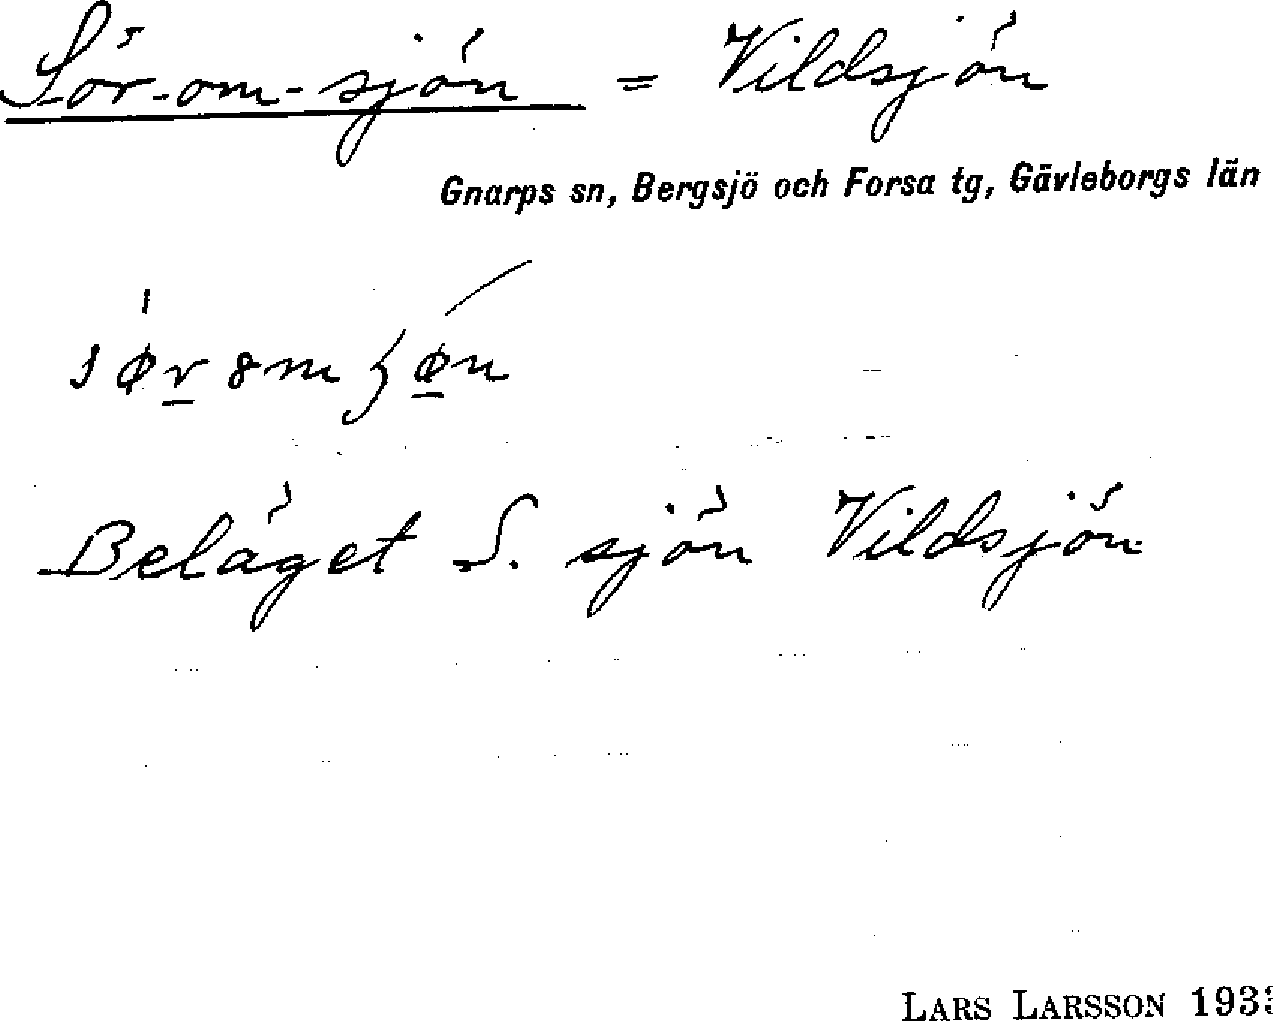 Sör-om-sjön = Vildsjön
Gnarps sn, Bergsjö och Forsa tg, Gävleborgs län
Beläget S. sjön Vildsjön
LARS LARSSON 193